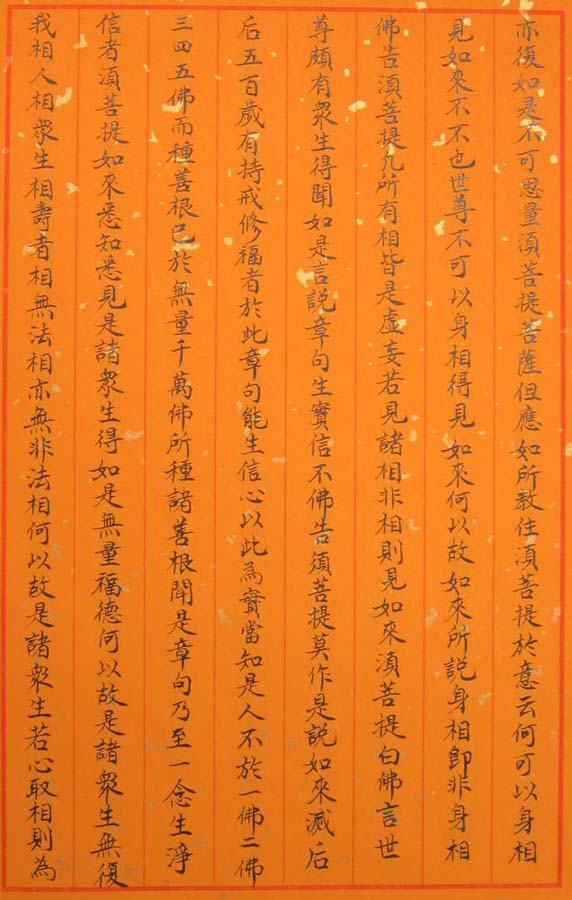 亦復如是不可思量須菩提菩薩但應如所教住須菩提於意云何可以身相
見如來不不也世尊不可以身相得見如來何以故如來所說身相即非身相
佛告須菩提凡所有相皆是虛妄若見諸相非相則見如來須菩提白佛言世
尊頗有眾生得聞如是言說章句生實信不佛告須菩提莫作是說如來滅后
后五百歲有持戒修福者於此章句能生信心以此為實當知是人不於一佛二佛
三四五佛而種善根已於無量千萬佛所種諸善根聞是章句乃至一念生淨
信者須菩提如來悉知悉見是諸眾生得如是無量福德何以故是諸眾生無復
我相人相眾生相壽者相無法相亦無非法相何以故是諸眾生若心取相則為